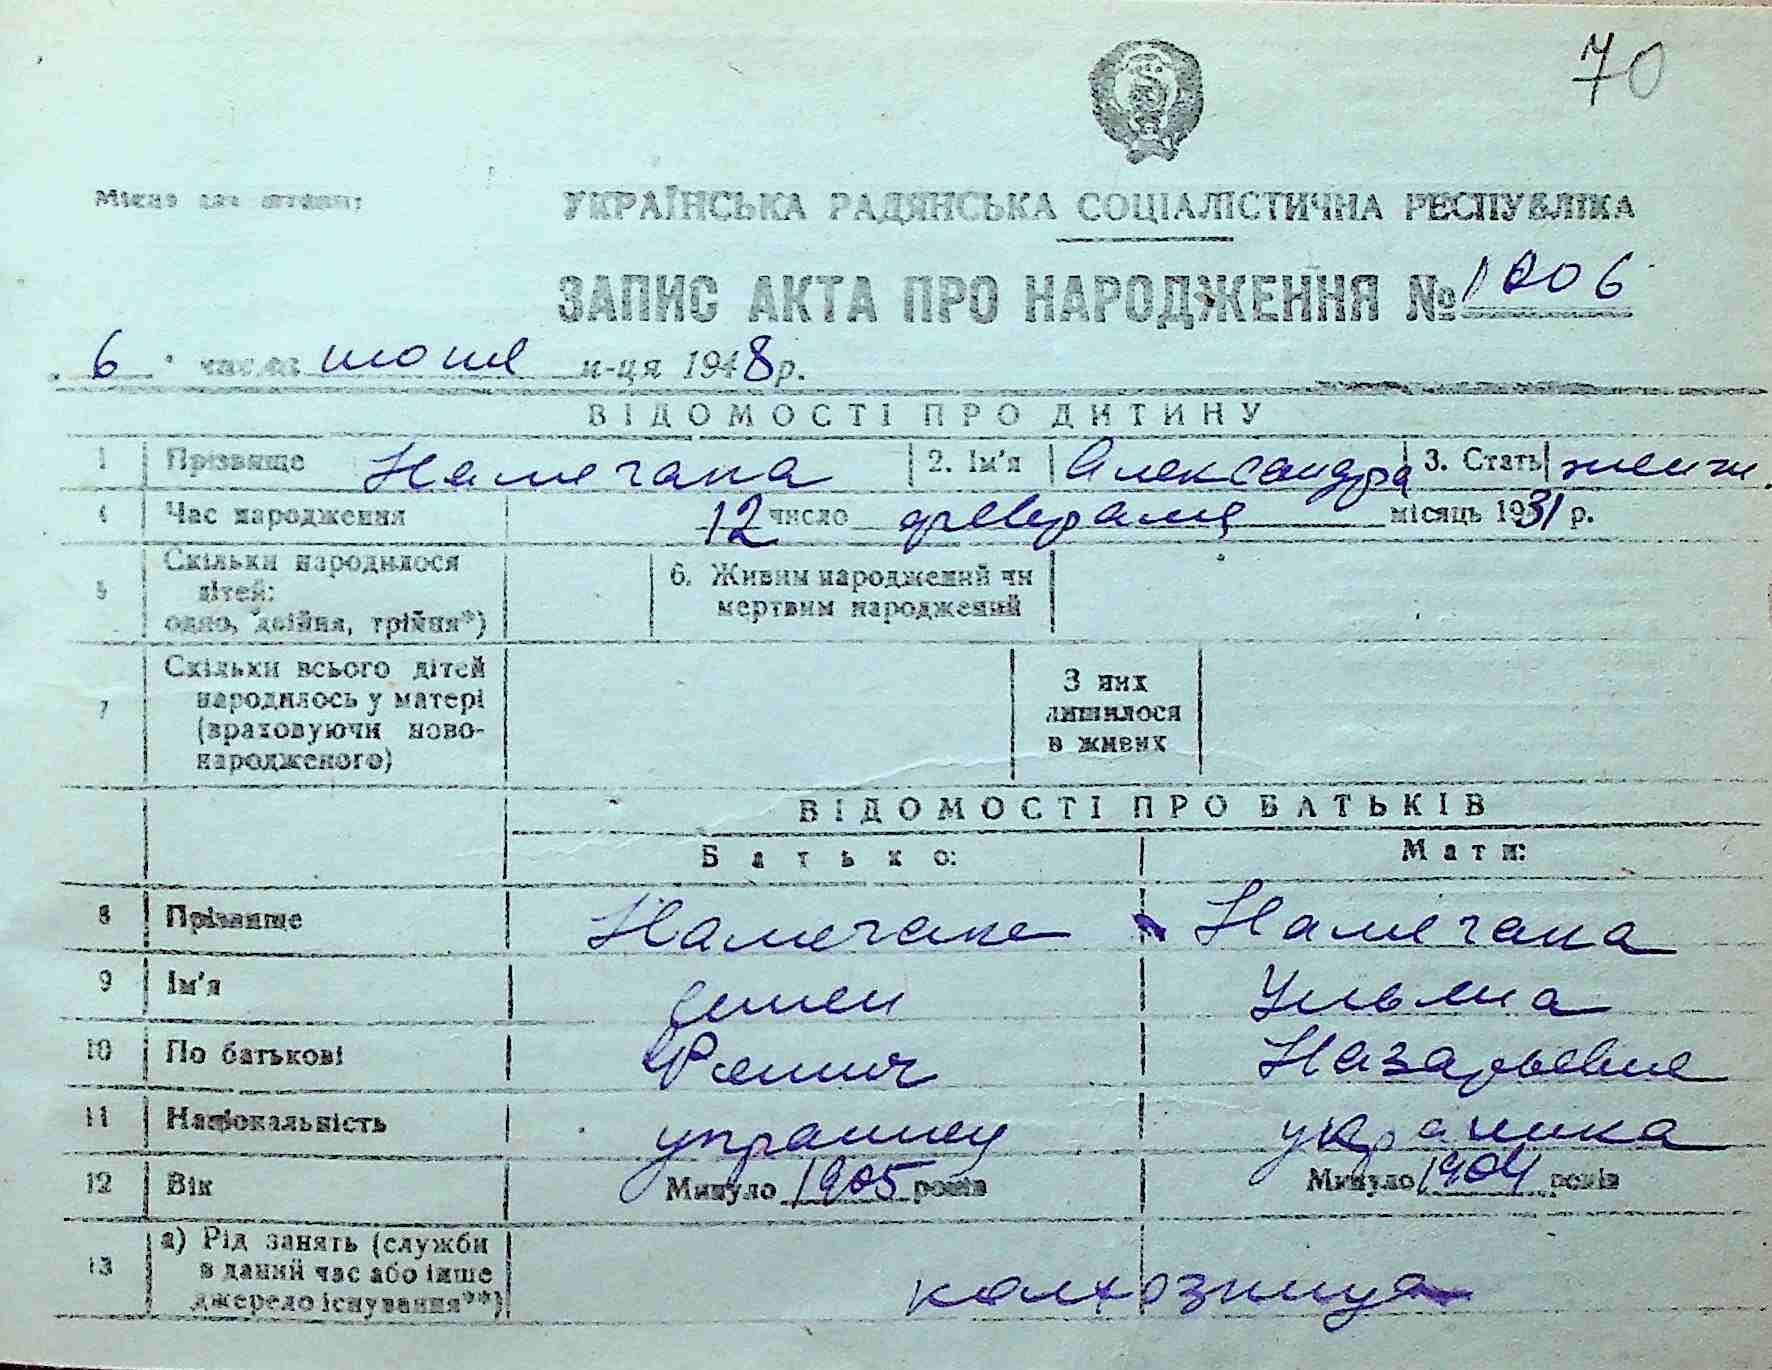 70
Місце для штампу
УКРАЇНСЬКА РАДЯНСЬКА СОЦІАЛІСТИЧНА РЕСПУБЛІКА
ЗАПИС АКТА ПРО НАРОДЖЕННЯ № 1206
6 числа июня м-ця 1948 р.
ВІДОМОСТІ ПРО ДИТИНУ
1 Прізвище Намечана 2. Ім'я Александра 3. Стать женск.
4 Час народження 12 число февраля місяць 1931 р.
5 Скільки народилося дітей: одно, двійня, трійня*) 6. Живим народжений чи мертвим народжений
7 Скільки всього дітей народилось у матері (враховуючи новонародженого) З них лишилося в живих
ВІДОМОСТІ ПРО БАТЬКІВ
Батько: Мати:
8 Прізвище Намечане Намечана
9 Ім'я Демен Ульяна
10 По батькові Назарьевна
11 Національність украинец украинка
12 Вік Минуло 1905 років Минуло 1904 років
13 а) Рід занять (служби в даний час або інше джерело існування**) колхозница